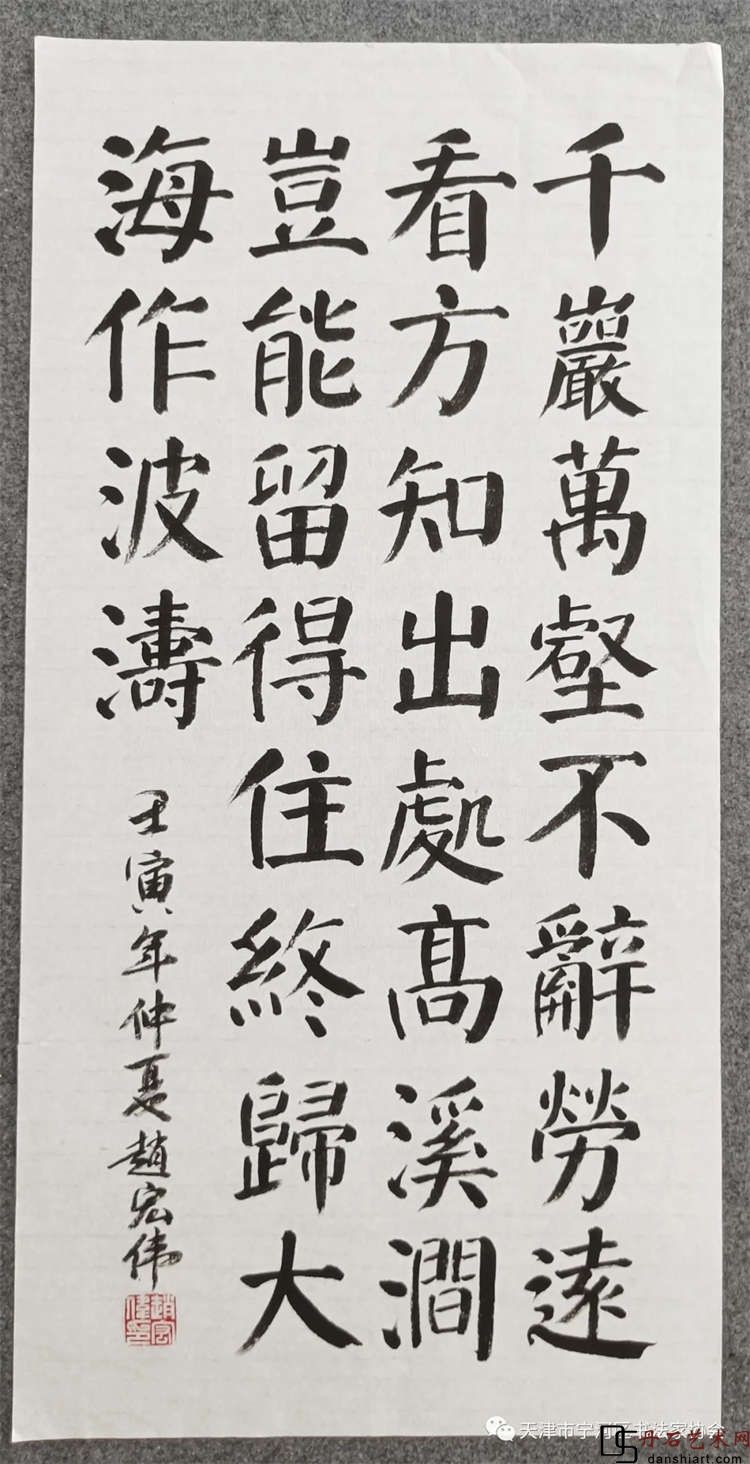 千巖萬壑不辭勞遠
看方知出處高溪澗
豈能留得住終歸大
海作波濤
壬寅年仲夏趙宏伟
天津市宁河区书法家协会
丹石艺术网
danshiart.com